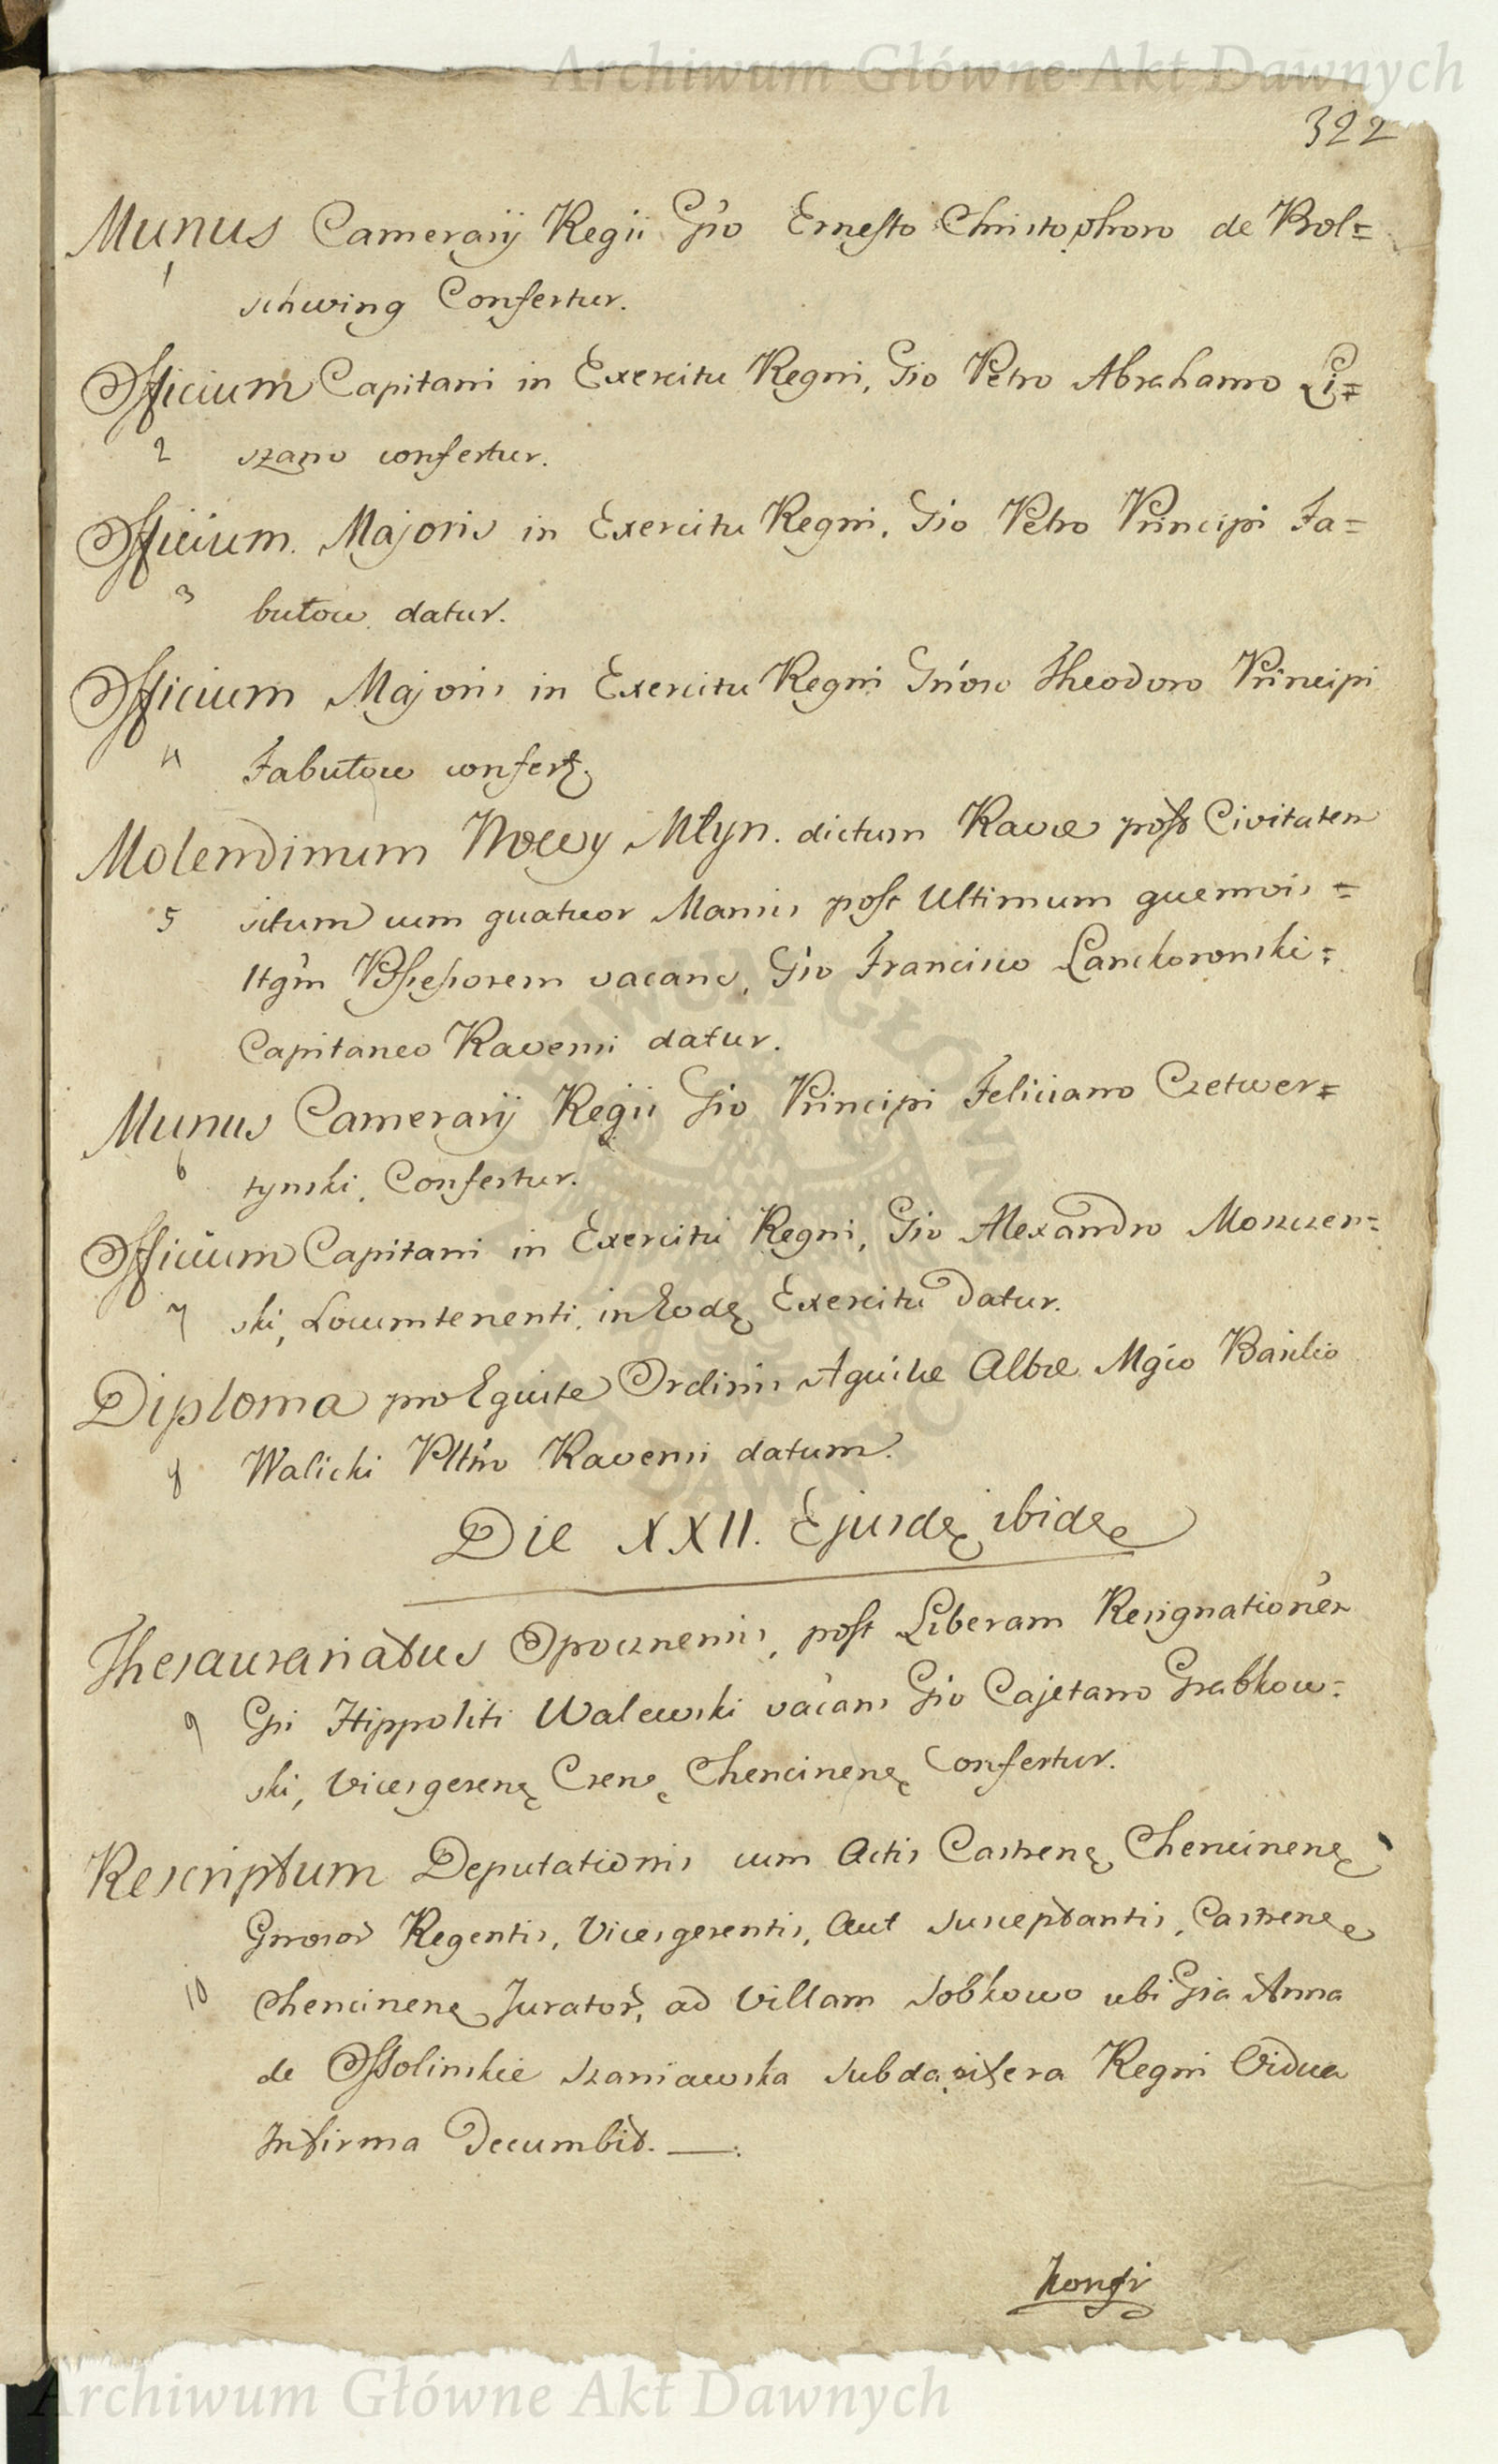 Archiwum Główne Akt Dawnych
322
Munus Camerarij Regii Gso Ernesto Christophoro de Bol=
1
schwing Confertur.
Officium Capitani in Exercitu Regni, Gso Petro Abrahamo Li=
2 szano confertur.
Officium Majoris in Exercitu Regni, Gso Petro Principi Ja=
3 butow datur.
Officium Majoris in Exercitu Regni Gnoso Theodoro Principi
4 Jabutow confertę
Molendinum Nowy Młyn dictum Ravæ post Civitatem
5 situm cum quatuor Mansis post Ultimum quemvis=
ltgm Possessorem vacans, Gso Francisco Lanckoronski=
Capitaneo Ravensi datur.
Munus Camerarij Regii Gso Principi Feliciano Czetwer=
6 tynski, Confertur.
Officium Capitani in Exercitu Regni, Gso Alexandro Moszczen=
7 ski, Locumtenenti in Eodę Exercitu Datur.
Diploma pro Equite Ordinis Aquilæ Albæ Mgco Basilio
8 Walicki Pltno Ravensi datum.
Die XXII. Ejusdę ibidę
Thesaurariatus Opocznensis, post Liberam Resignationem
9 Gsi Hippoliti Walewski vacans Gso Cajetano Grabkow=
ski, Vicesgerenę Crenę Chencinenę Confertur.
Rescriptum Deputationis cum Actis Castrenę Chencinenę
Gnosor Regentis, Vicesgerentis, Aut Susceptantis, Castrenę
10 Chencinenę Jurator, ad Villam Sobkowo ubi Gsa Anna
de Ossolinskie Szaniawska Subdapifera Regni Vidua
Infirma Decumbit. —:
ARCHIWUM GŁÓWNE AKT DAWNYCH
Archiwum Główne Akt Dawnych